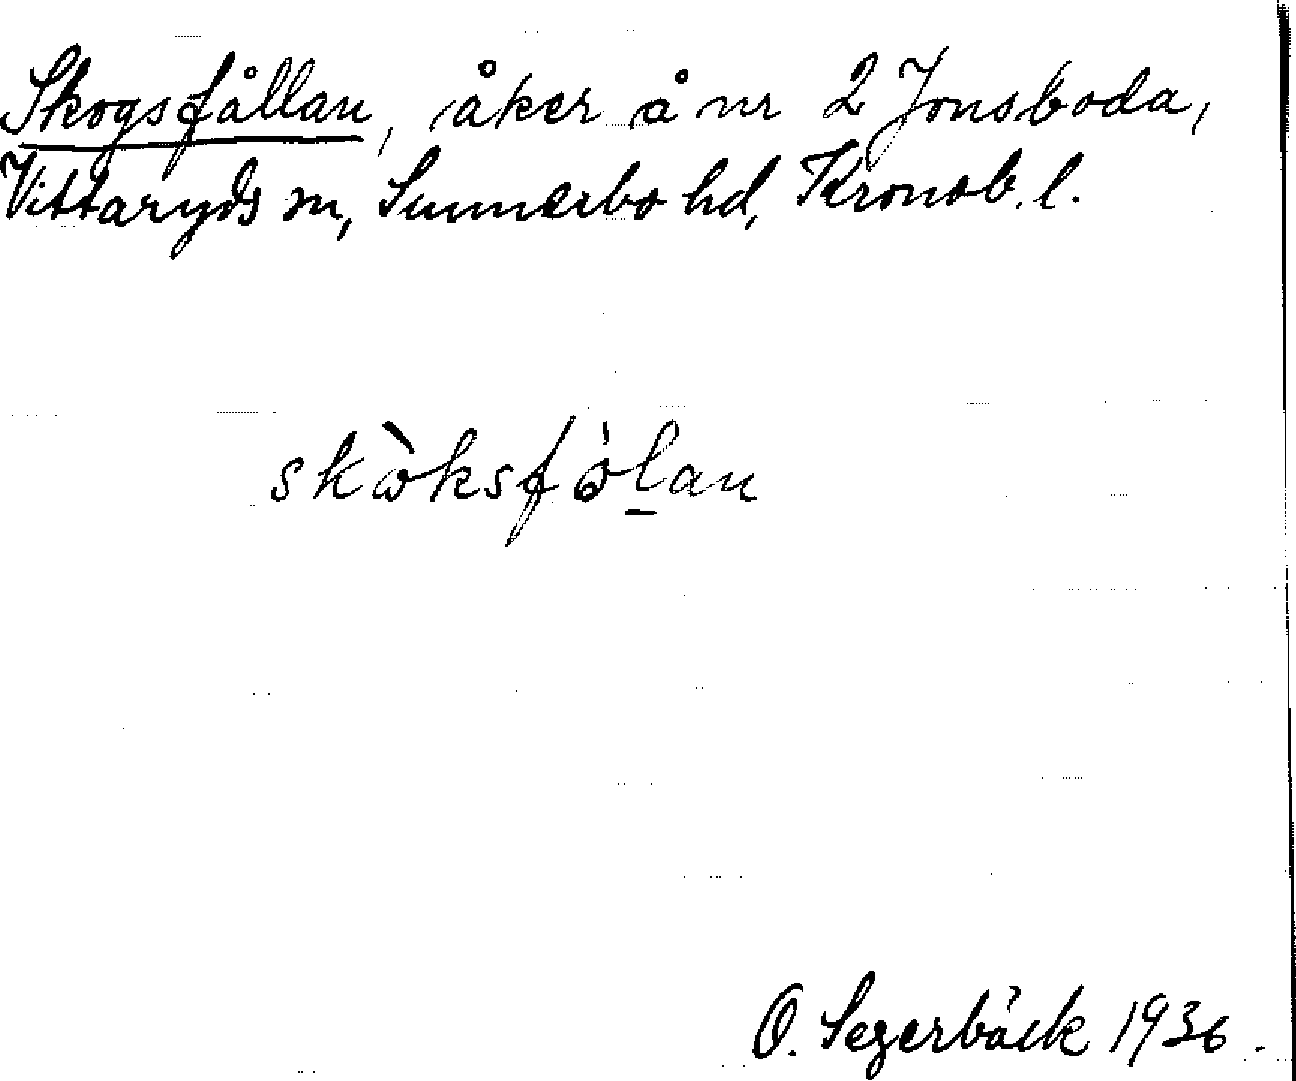 Skogsfållan, åker å nr 2 Jonsboda,
Vittaryds sn, Sunnerbo hd, Kronob. l.
skòksfòlan
O. Segerbäck 1936.